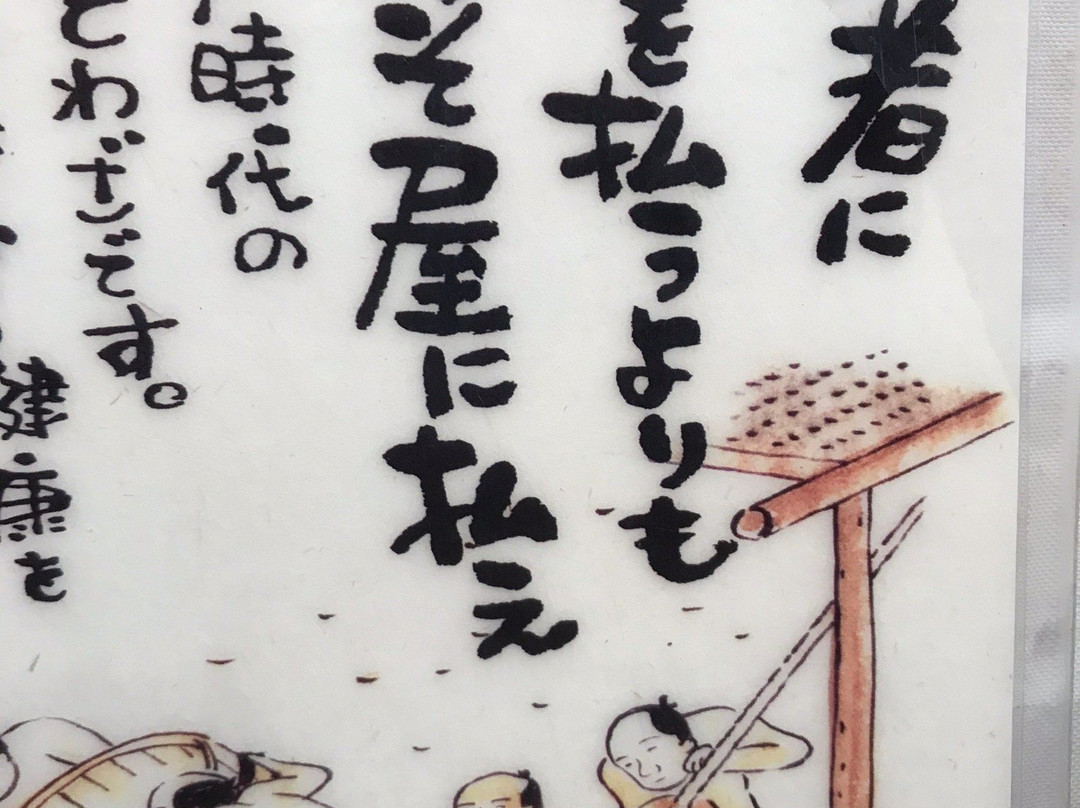 者に
を払うよりも
そ屋に払え
時代の
とわざです。
健康を